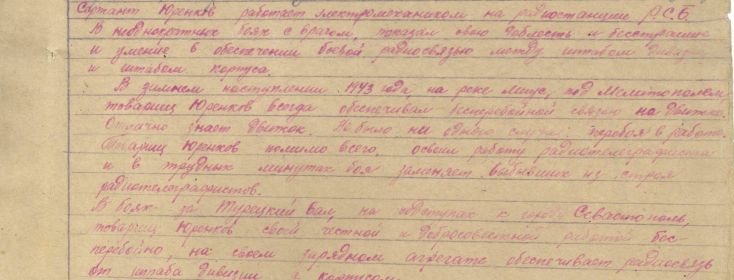 Сержант Юренков работает электромехаником на радиостанции Р.С.Б.
В неоднократных боях с врагом, показал свою доблесть и бесстрашие
и умение в обеспечении боевой радиосвязью между штабом дивизии
и штабом корпуса.
В зимнем наступлении 1943 года, на реке Миус, под Мелитополем,
товарищ Юренков всегда обеспечивал бесперебойной связью на движке.
Отлично знает движок. Не было ни одного случая перебоя в работе.
Товарищ Юренков помимо всего, освоил работу радиотелеграфиста
и в трудных минутах боя заменяет выбывших из строя
радиотелеграфистов.
В боях за Турецкий вал, на подступах к городу Севастополь,
товарищ Юренков своей честной и добросовестной работой бес-
перебойно, на своем зарядном агрегате обеспечивает радиосвязь
от штаба дивизии с корпусом.